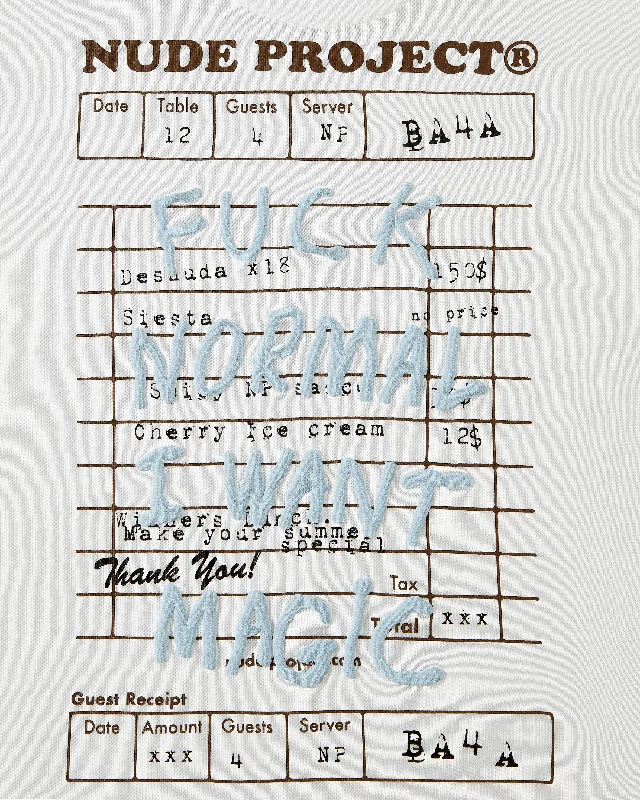 NUDE PROJECT®
Date Table Guests Server
12 4 NP BA4A
FUCK
x18 150$
Siesta no price
NORMAL
NP
Cherry Ice cream 12$
I WANT
Winners Lunch.
Make your summe
special
Thank You!
Tax
MAGIC
Total xxx
Guest Receipt
Date Amount Guests Server
xxx 4 NP BA4A